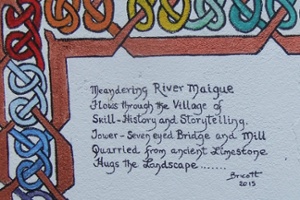 Meandering River Maigue
Flows through the Village of
Skill-History and Storytelling.
Tower-Seven eyed Bridge and Mill
Quarried from ancient Limestone
Hugs the Landscape.......
2015